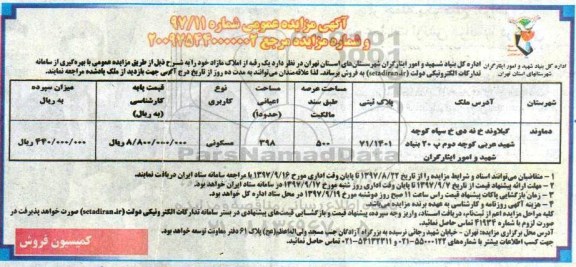 آگهی مزایده عمومی شماره ۹۷/۱۱
و شماره مزایده مرجع ۲۰۰۹۷۵۴۴۰۰۰۰۰۰۲
اداره کل بنیاد شهید و امور ایثارگران
شهرستانهای استان تهران
اداره کل بنیاد شهید و امور ایثارگران شهرستان‌های استان تهران در نظر دارد یک رقبه از املاک مازاد خود را به شرح ذیل از طریق مزایده عمومی با بهره‌گیری از سامانه
تدارکات الکترونیکی دولت (setadiran.ir) به فروش برساند. لذا علاقه‌مندان می‌توانند به مدت ده روز از تاریخ درج آگهی جهت بازدید از ملک یادشده مراجعه نمایند.
شهرستان
آدرس ملک
پلاک ثبتی
مساحت عرصه طبق سند مالکیت
مساحت اعیانی (حدوداً)
نوع کاربری
قیمت پایه کارشناسی (به ریال)
میزان سپرده به ریال
دماوند
گیلاوند خ نه دی خ سپاه کوچه شهید عربی کوچه دوم پ ۲۰ بنیاد شهید و امور ایثارگران
۷۱/۱۴۰۱
۵۰۰
۳۹۸
مسکونی
۸/۸۰۰/۰۰۰/۰۰۰ ریال
۴۴۰/۰۰۰/۰۰۰ ریال
۱ - متقاضیان می‌توانند اسناد و شرایط مزایده را از تاریخ ۱۳۹۷/۸/۲۲ تا پایان وقت اداری مورخ ۱۳۹۷/۹/۱۶ با مراجعه سامانه ستاد ایران دریافت نمایند.
۲ - مهلت ارائه پیشنهاد قیمت از تاریخ ۱۳۹۷/۹/۷ تا پایان وقت اداری روز شنبه مورخ ۱۳۹۷/۹/۱۷ در سامانه ستاد ایران خواهد بود.
۳ - زمان بازگشایی پاکات پیشنهاد قیمت راس ساعت ۱۱ صبح روز دوشنبه مورخ ۱۳۹۷/۹/۱۹ در محل ستاد اداره کل خواهد بود.
۴ - هزینه آگهی روزنامه و کارشناسی به عهده برنده مزایده می‌باشد.
کلیه مراحل مزایده اعم از ثبت‌نام، دریافت اسناد، واریز وجه سپرده، پیشنهاد قیمت و بازگشایی قیمت‌های پیشنهادی در بستر سامانه تدارکات الکترونیکی دولت (setadiran.ir) صورت خواهد پذیرفت در
صورت لزوم با شماره ۴۱۹۳۴ تماس حاصل نمائید.
آدرس محل برگزاری مزایده: تهران - خیابان شهید رجائی نرسیده به بزرگراه آزادگان جنب مسجد ولی‌اله‌اعظم (عج) پلاک ۶۱ دفتر معاونت توسعه خواهد بود.
جهت کسب اطلاعات بیشتر با شماره های ۵۵۰۰۰۱۲۲-۰۲۱ و ۵۴۱۳۲۳۱۱-۰۲۱ تماس حاصل نمائید.
کمیسیون فروش
ParsNamadData